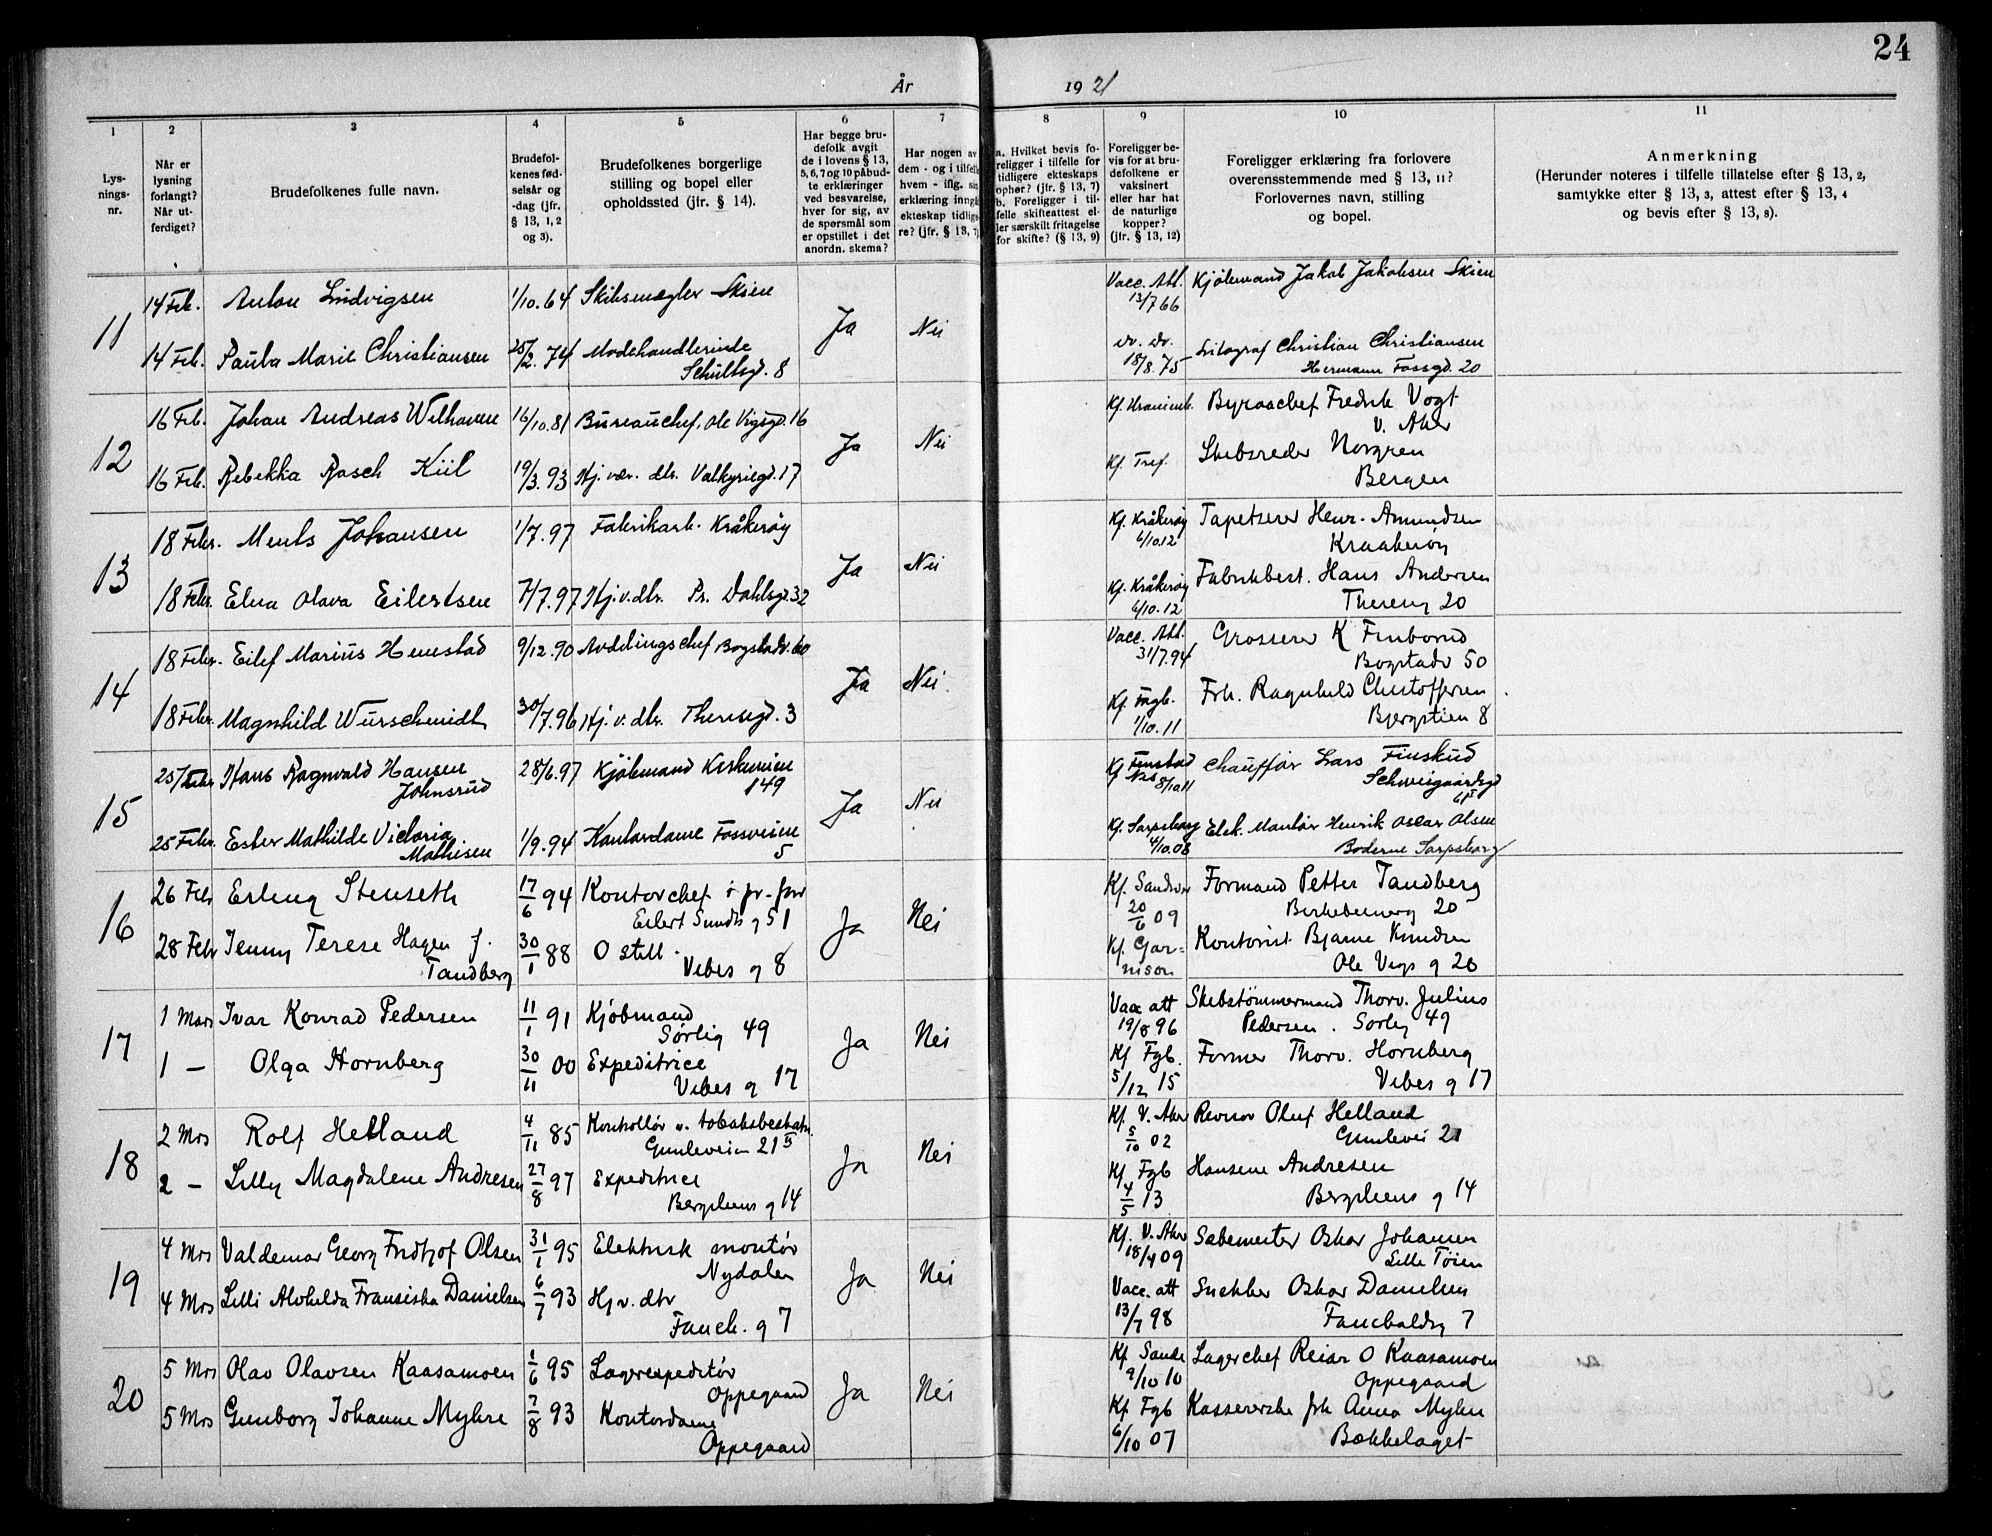 24
År 1921
1 2 3 4 5 6 7 8 9 10 11
Lys-
nings-
nr.
Når er
lysning
forlangt?
Når ut-
ferdiget?
Brudefolkenes fulle navn.
Brudefol-
kenes fød-
selsår og
-dag (jfr.
§ 13, 1, 2
og 3).
Brudefolkenes borgerlige
stilling og bopel eller
opholdssted (jfr. § 14).
Har begge bru-
defolk avgit
de i lovens § 13,
5, 6, 7 og 10 påbud-
te erklæringer
ved besvarelse,
hver for sig, av
de spørsmål som
er opstillet i det
anordn. skema?
Har nogen av
dem - og i tilfelle
hvem - iflg. sin
erklæring inngå
ekteskap tidlige-
re? (jfr. § 13, 7)
a. Hvilket bevis fo-
religger i tilfelle for
tidligere ekteskaps
ophør? (jfr. § 13, 7)
b. Foreligger i til-
felle skifteattest el-
ler særskilt fritagelse
for skifte? (§ 13, 9)
Foreligger be-
vis for at bru-
defolkene er
vaksinert
eller har hat
de naturlige
kopper?
(jfr. § 13, 12)
Foreligger erklæring fra forlovere
overensstemmende med § 13, 11?
Forlovernes navn, stilling
og bopel.
Anmerkning
(Herunder noteres i tilfelle tillatelse efter § 13, 2,
samtykke efter § 13, 3, attest efter § 13, 4
og bevis efter § 13, 8).
11
14 Feb. Anton Ludvigsen 1/10.64 Skibsmægler Skien Ja Nei Vacc. Att. Kjøbmand Jakob Jakobsen Skien
13/7 66
14 Feb. Paula Marie Christiansen 25/2.74 Modehandlerinde do. do. Litograf Christian Christiansen
Schultsgd. 8 18/8.75 Hermann Fossgd. 20
12
16 Feb. Johan Andreas Welhaven 16/10.81 Bureauchef, Ole Vigsgd. 16 Ja Nei Kf. Uranienb. Byraachef Fredrik Vogt
V. Aker
16 Feb. Rebekka Rasch Kiil 19/3.93 Hj. vær. dtr. Valkyriegd. 17 Kf. Tref. Skibsreder Norgren
Bergen
13
18 Febr. Johansen 1/7.97 Fabrikarb. Kråkerøy Ja Nei Kf. Kråkerøy Tapetserer Henr. Amundsen
6/10.12 Kraakerøy
18 Febr. Elna Olava Eilertsen 7/7.97 Hj. v. dtr. Pr. Dahlsgd. 32 Kf. Kråkerøy Hans Andersen
6/10.12 Thereseg 20
14
18 Febr. Eilef Marius Hemstad 9/12.90 Avdelingschef Bogstadv. 60 Ja Nei. Vacc. Att. Grosserer K
31/7.94 Bogstadv 50
18 Febr. Magnhild Würschmidt 30/7.96 Hj. v. dtr. Theresegd. 3 Kf. Fagb. Frk. Ragnhild Christoffersen
1/10.11 Bjergstien 8
15
25/Febr. Hans Ragnvald Hansen 28/6.97 Kjøbmand Kirkeveien Ja Nei Kf. chauffør Lars Finskud
Johnsrud 149 Nes 8/10 11 Schweigaardsgd
61 I
25 Febr. Ester Mathilde Victoria 1/9.94 Kontordame Fossveien Kf. Sarpsborg Elek. Montør Henrik Oscar Olsen
Mathisen 5 4/10.08 Sarpsborg
16
26 Feb Erling Stenseth 17/6 94 Kontorchef i pr. forr Ja Nei Kf. Sandsvær Formand Petter Tandberg
Eilert Sundts g 51 20/6 09 Birkebeinerg 20
28 Febr Jenny Terese Hagen f. 30/1 88 O still. Kf. Gar= Kontorist Bjarne Knudsen
Tandberg Vibes g 8 nison Ole Vigs g 20
17
1 Mars Ivar Konrad Pedersen 11/1 91 Kjøbmand Ja Nei Vacc att Skibstømmermand Thorv. Julius
Sørlig 49 19/8 96 Pedersen. Sørlig 49
1 — Olga Hornberg 30/11 00 Expeditrice Kf Fgb. Former Thorv. Hornberg
Vibes g 17 5/12 15 Vibes g 17
18
2 Mrs Rolf Helland 4/11 85 Kontrollør v. tobaksbeskatn. Ja Nei Kf. V. Aker Revisor Oluf Helland
Gimleveien 21 5 5/10 02 Gimlevei 21
2 — Lilly Magdalene Andresen 27/8 97 Expeditrice Kf Fgb Andresen
Bergsliens g 14 4/5 13 Bergsliens g 14
19
4 Mrs Valdemar Georg Fridtjof Olsen 31/1 95 Elektrisk montør Ja Nei Kf. V. Aker Oskar Johansen
Nydalen 18/4 09 Lille Tøien
4 Mrs Lilli Alvhilda Fransiska Danielsen 6/7 93 Hj v. dtr Vacc. att Snekker Oskar Danielsen
Fauch. g 7 13/7 98 Fauchaldsg 7
20
5 Mrs Olav Olavsen Kaasamoen 1/6 95 Lagerexpeditør Ja Nei Kf Sande Lagerchef Reiar O Kaasamoen
Oppegaard 9/10 10 Oppegaard
5 Mrs Gunborg Johanne Myhre 7/8 93 Kontordame Kf Fgb Kassererske frk Anna Myhre
Oppegaard 6/10 07 Bækkelaget